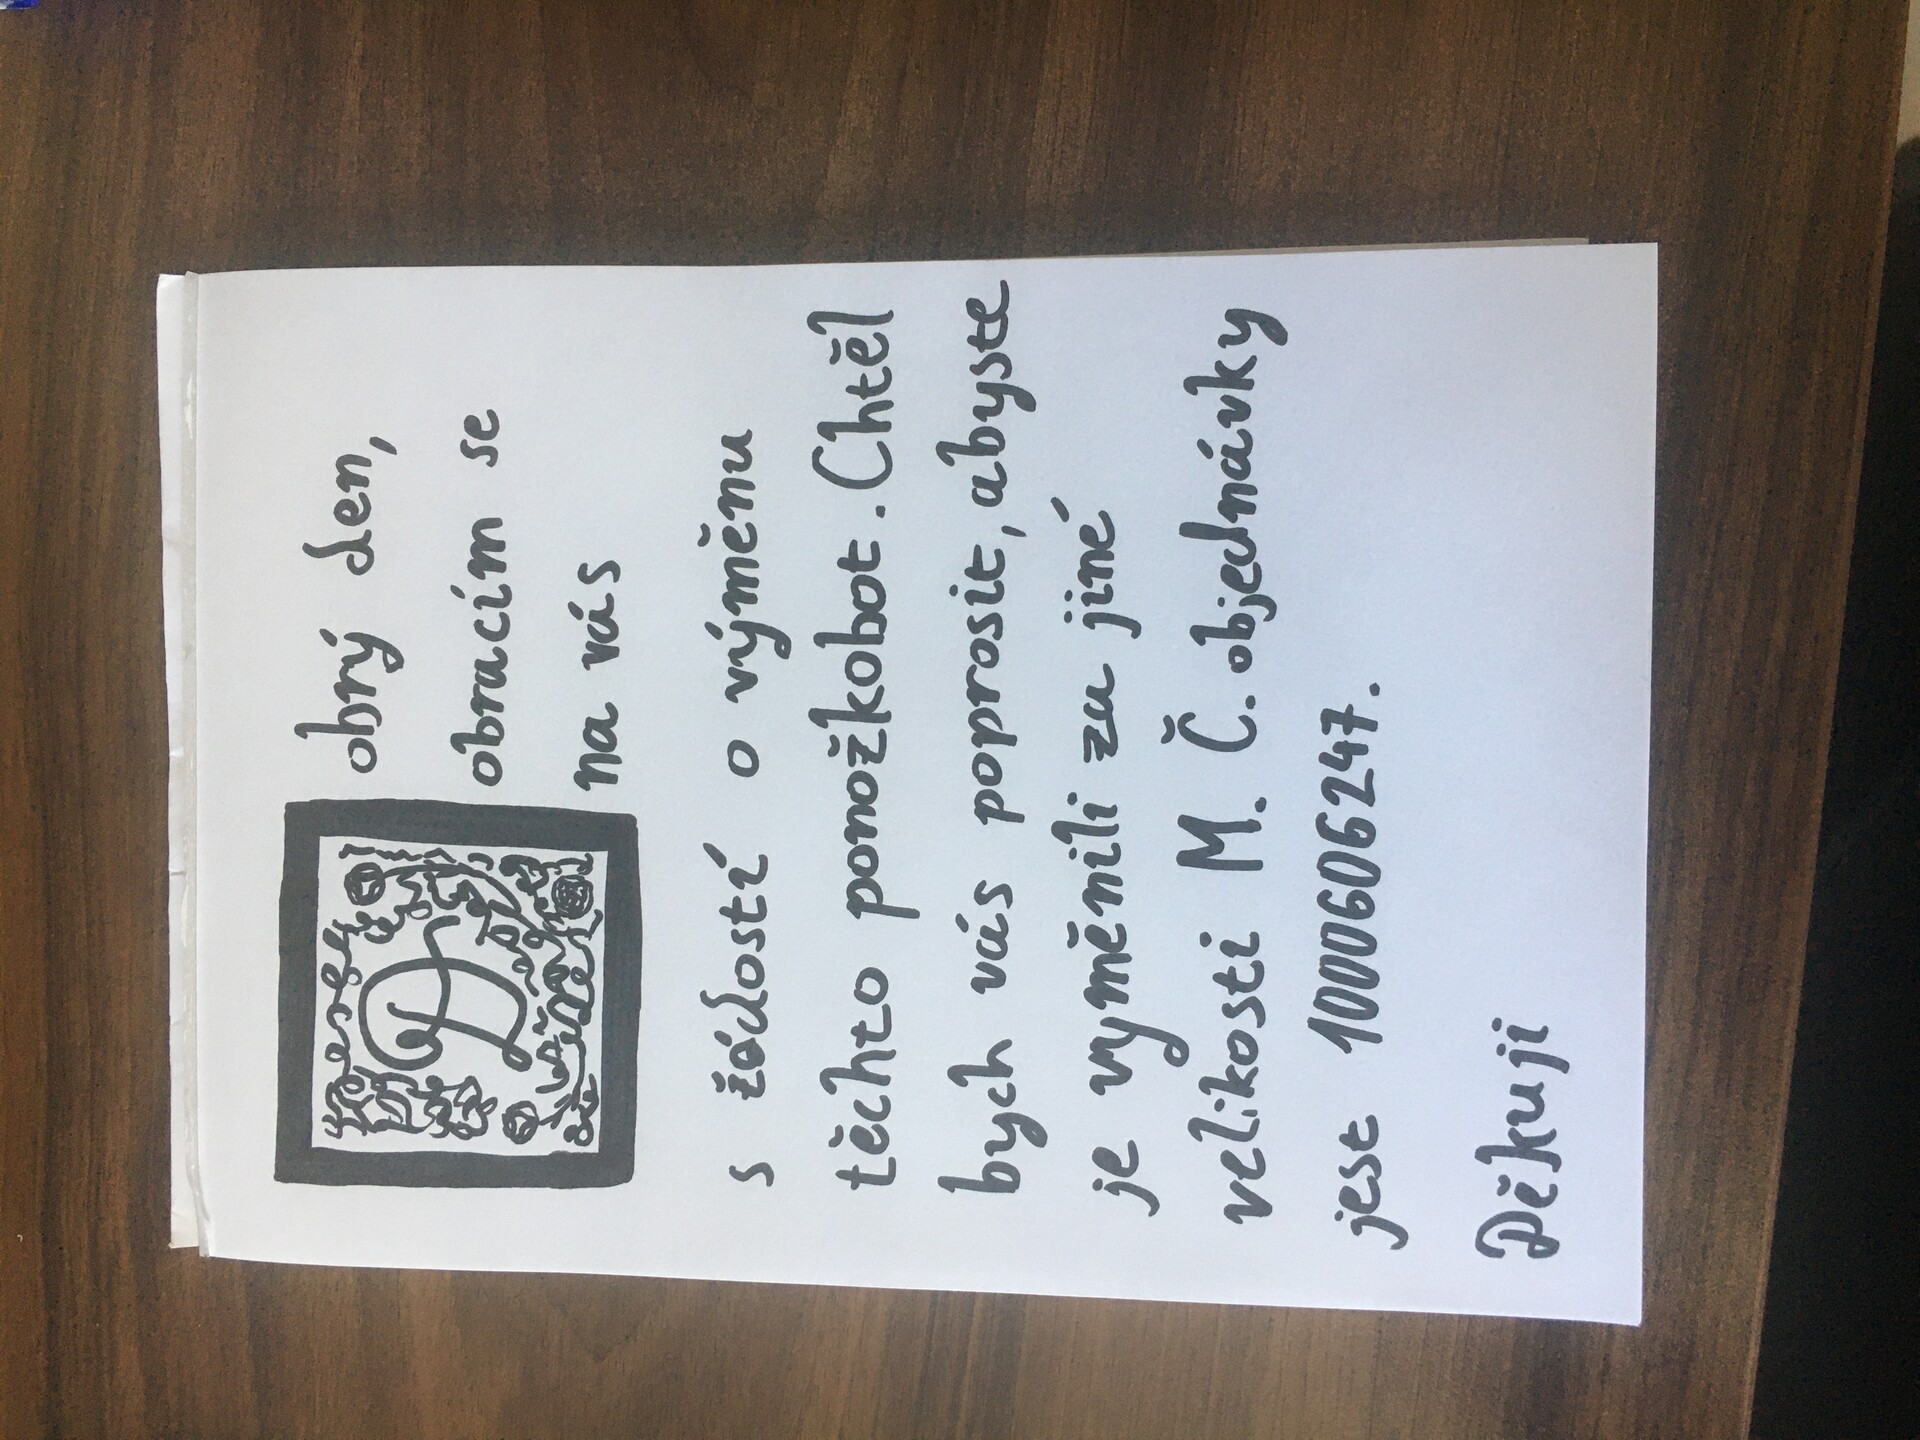 Dobrý den,
obracím se
na vás
s žádostí o výměnu
těchto ponožkobot. Chtěl
bych vás poprosit, abyste
je vyměnili za jiné
velikosti M. Č. objednávky
jest 1000606247.
Děkuji